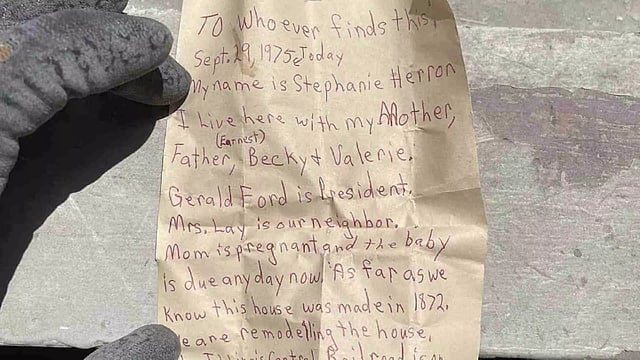 To Whoever finds this,
Sept. 29, 1975 & Today
My name is Stephanie Herron
I Live here with my Mother,
(Earnest)
Father, Becky + Valerie.
Gerald Ford is President.
Mrs. Lay is our neighbor.
Mom is pregnant and the baby
is due any day now. As far as we
know this house was made in 1872.
We are remodelling the house.
Illinois Central Railroad is on